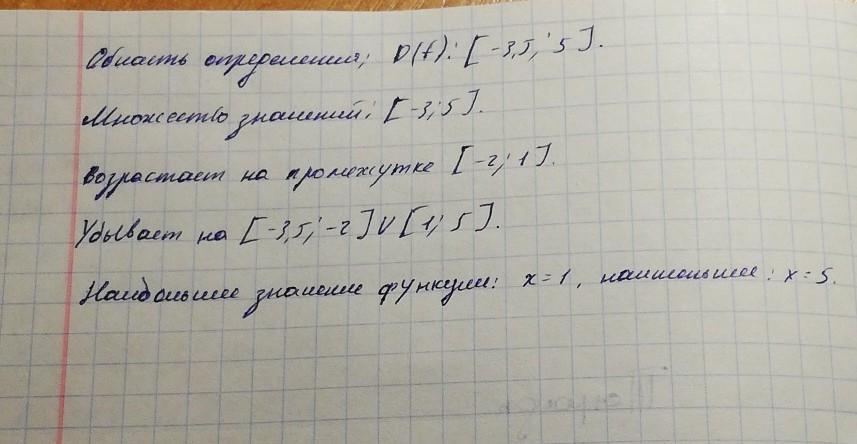 Область определения; D(f): [-3,5; 5].
Множество значений: [-3; 5].
Возрастает на промежутке [-2; 1].
Убывает на [-3,5; -2] U [1; 5].
Наибольшее значение функции: x=1, наименьшее: x=5.